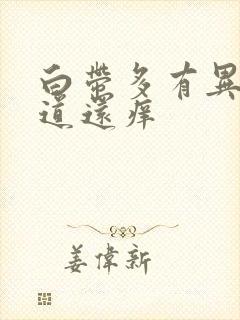 白帶多有異
道還痒
姜偉新